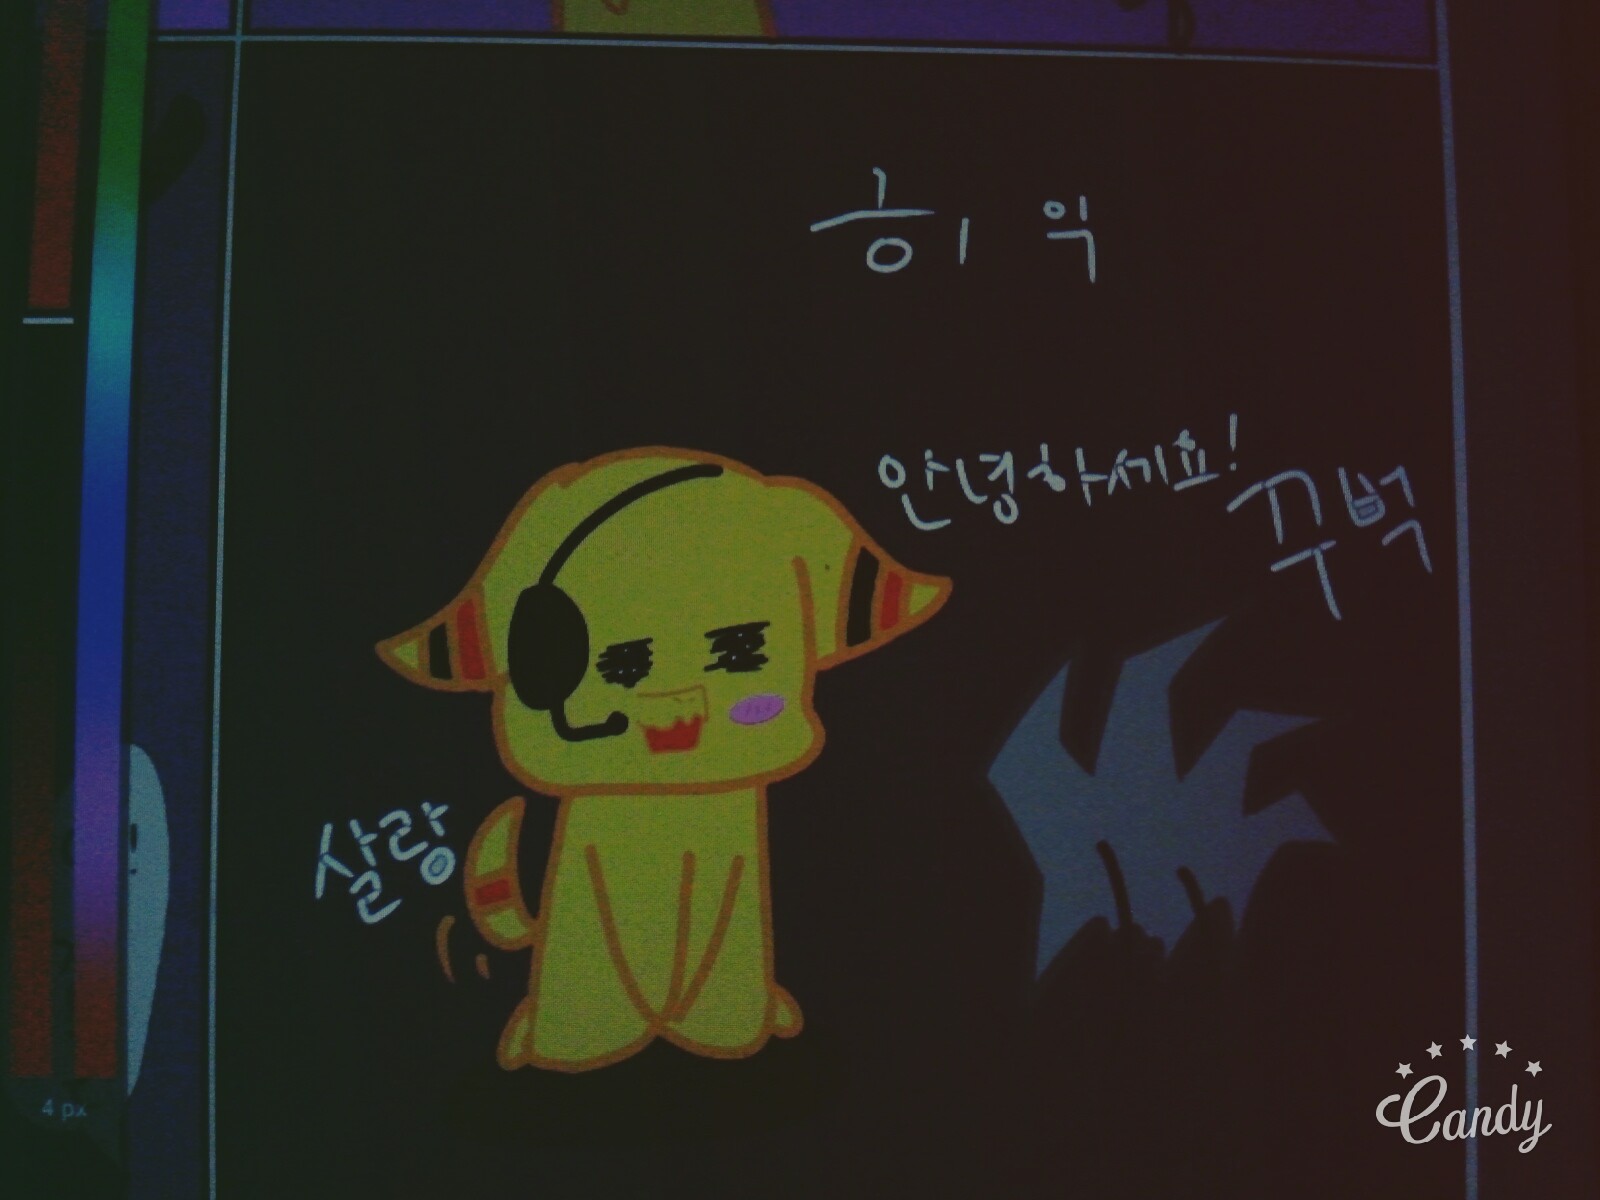 히익
안녕하세요! 꾸벅
살랑
4 px
Candy